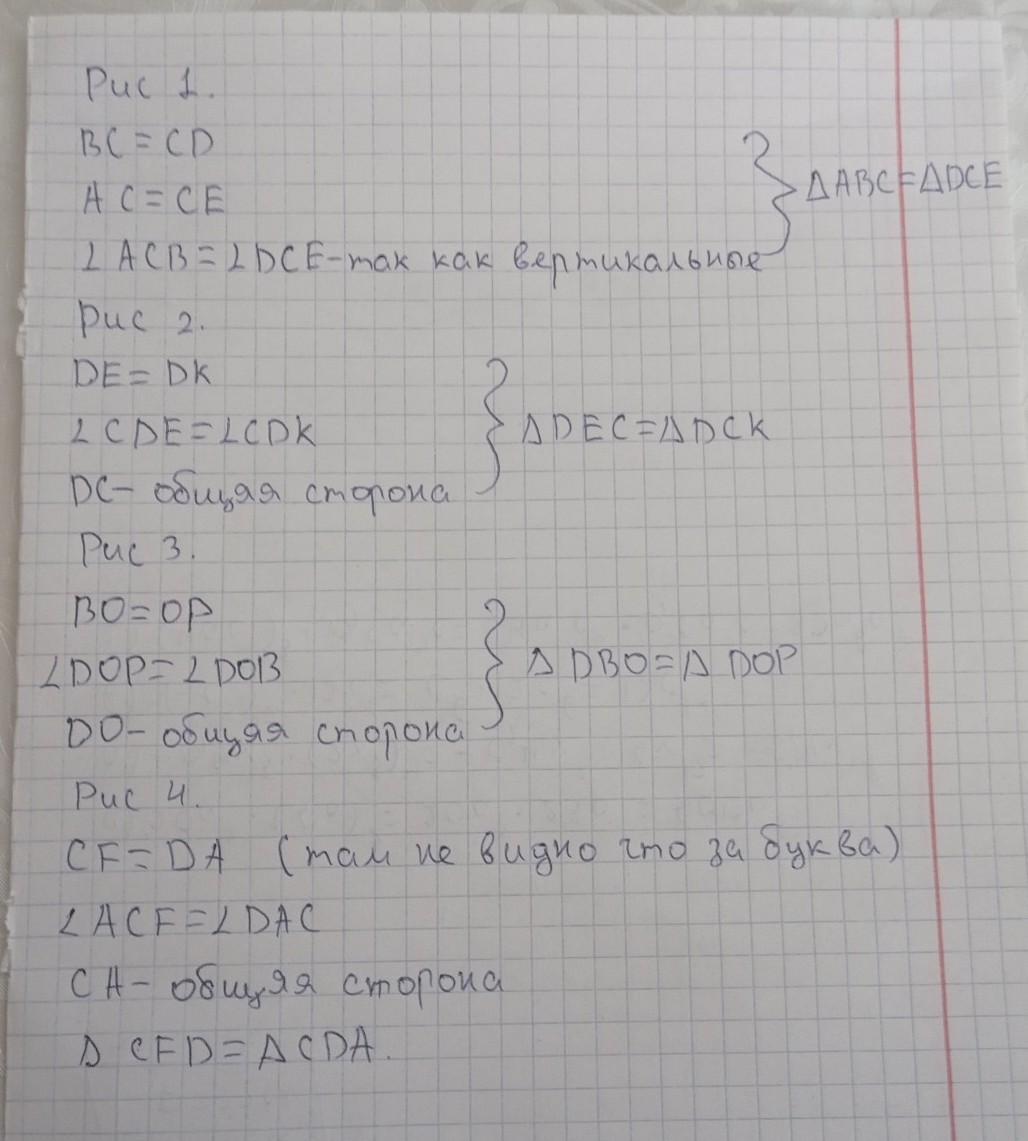 Рис 1.
BC = CD
AC = CE
∠ACB = ∠DCE - так как вертикальные
} ΔABC = ΔDCE
Рис 2.
DE = DK
∠CDE = ∠CDK
DC - общая сторона
} ΔDEC = ΔDCK
Рис 3.
BO = OP
∠DOP = ∠DOB
DO - общая сторона
} ΔDBO = ΔDOP
Рис 4.
CF = DA (там не видно что за буква)
∠ACF = ∠DAC
CA - общая сторона
ΔCFD = ΔCDA.